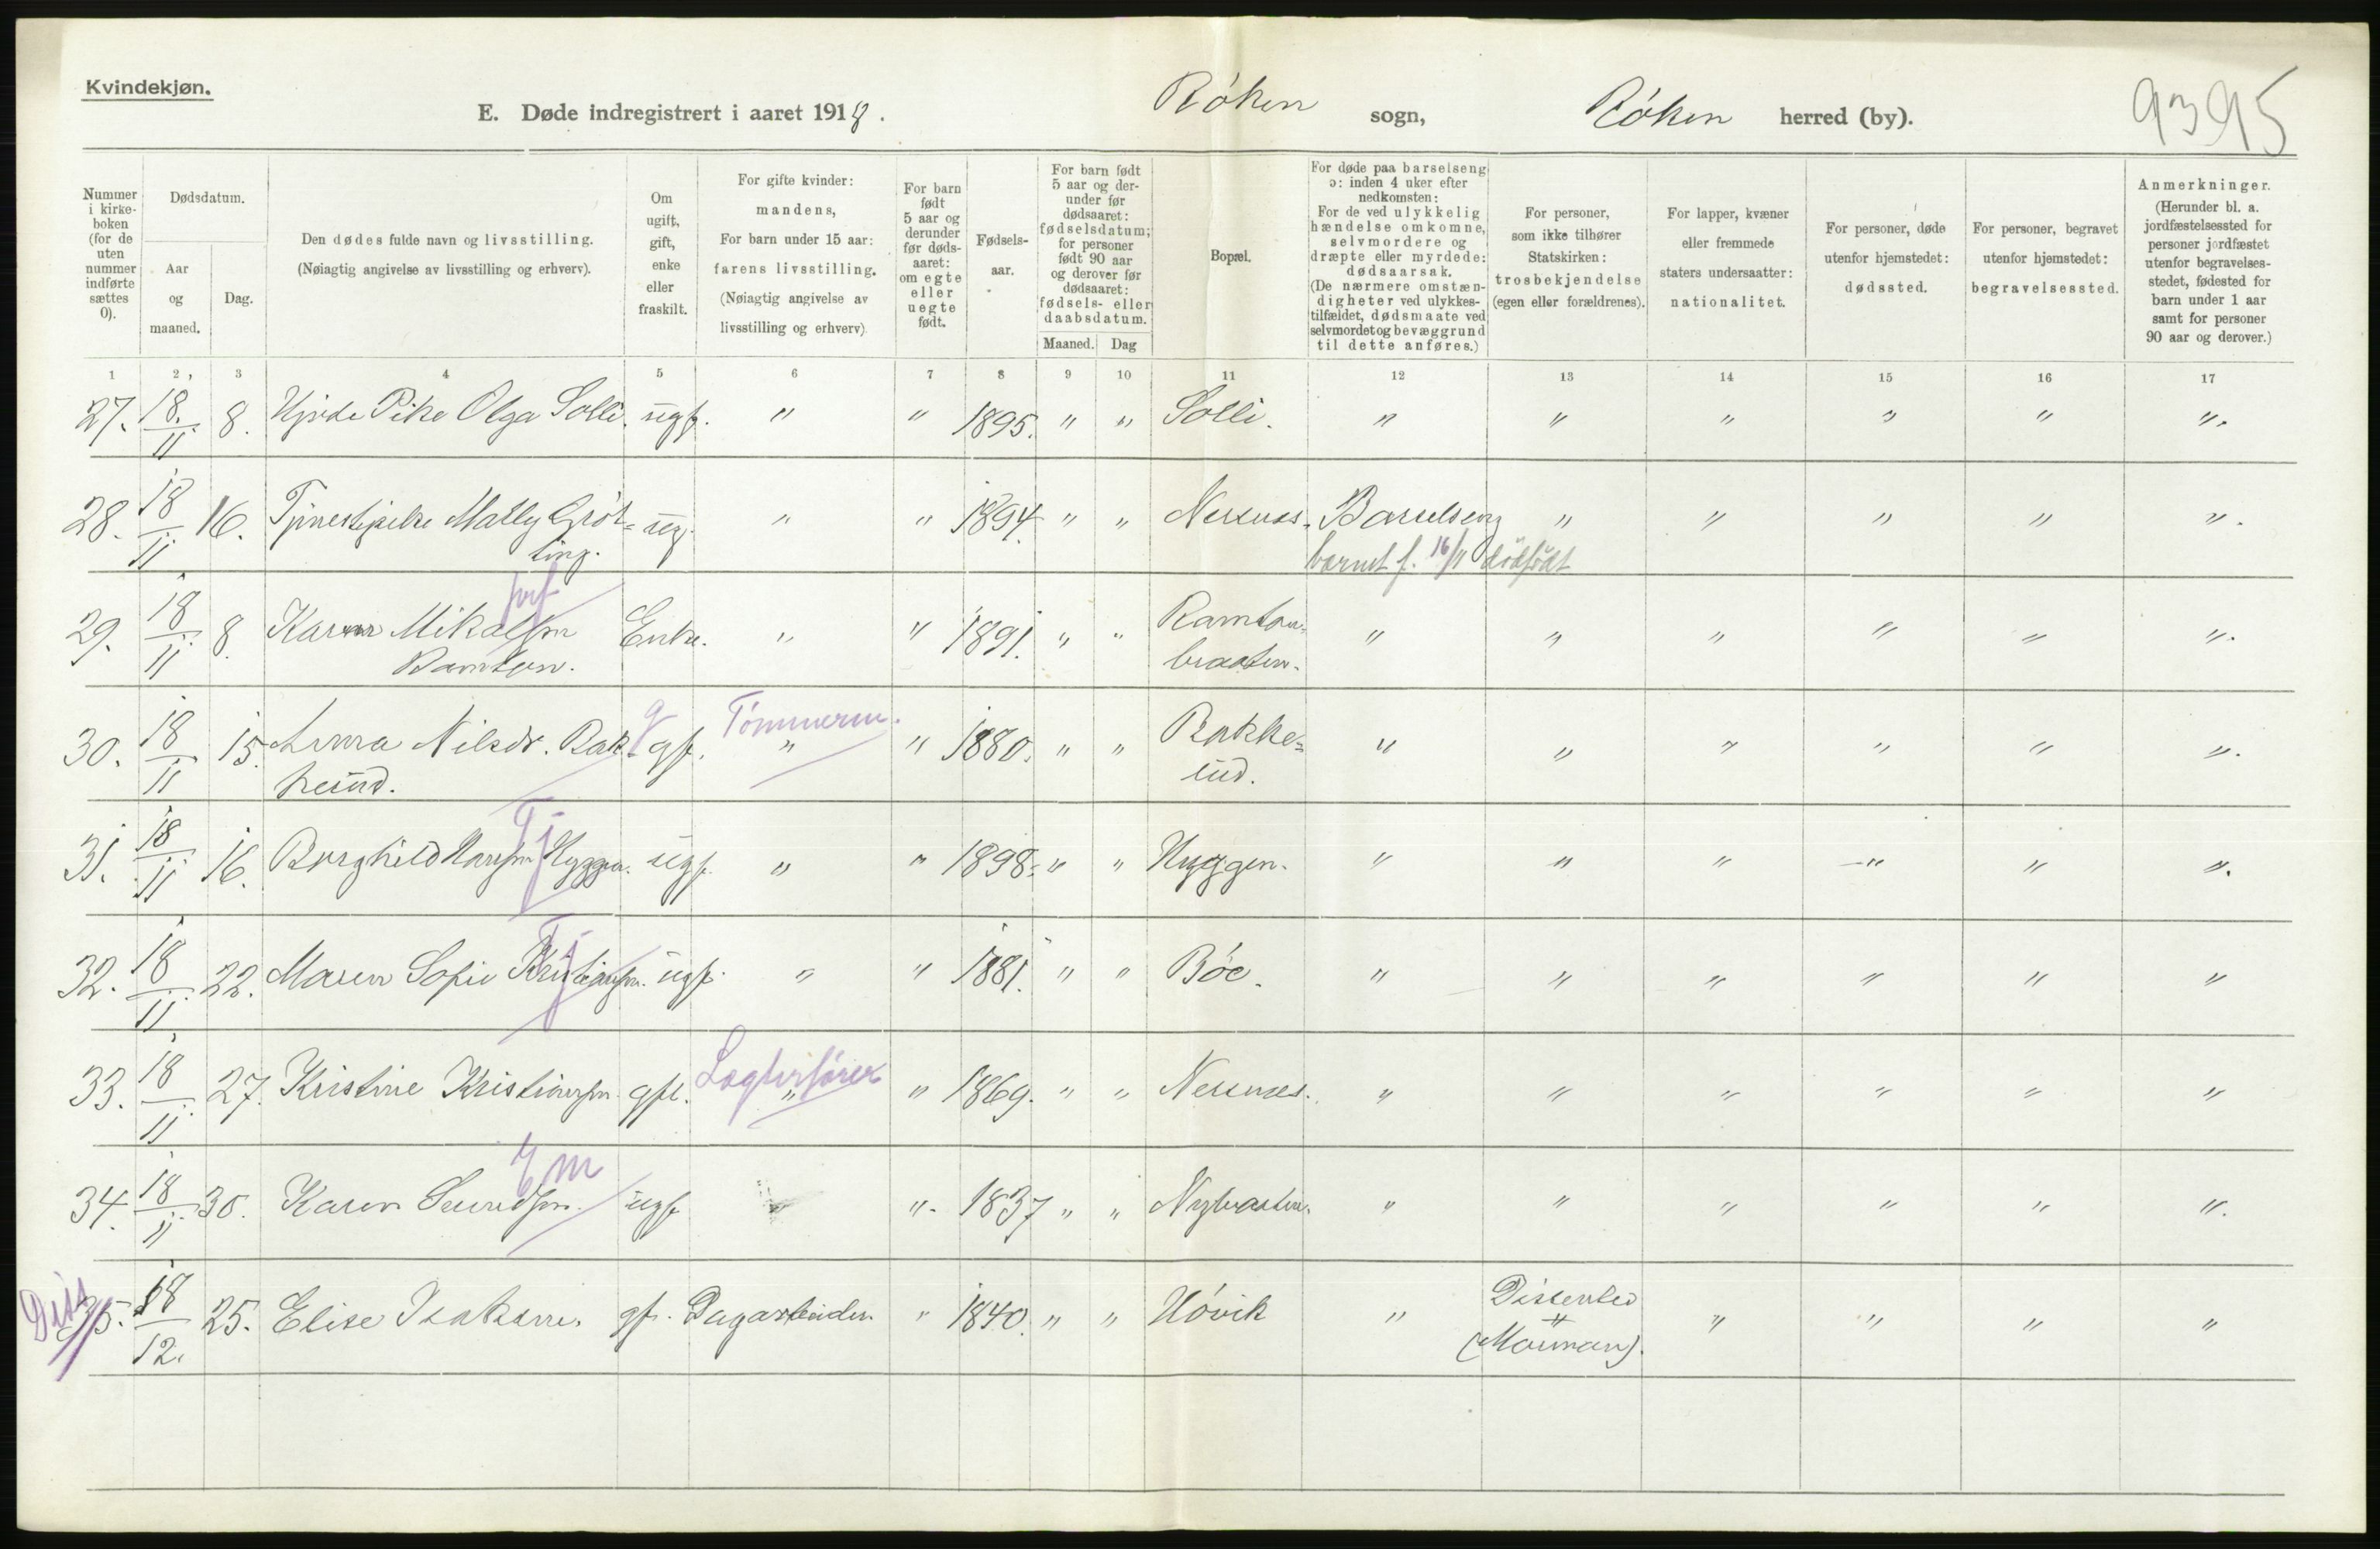 Kvindekjøn.
E. Døde indregistrert i aaret 1918. Røken sogn, Røken herred (by).
9395
Nummer i kirke-boken (for de uten nummer indførte sættes 0).
Dødsdatum.
Aar og maaned.
Dag.
Den dødes fulde navn og livsstilling.
(Nøiagtig angivelse av livsstilling og erhverv).
Om ugift, gift, enke eller fraskilt.
For gifte kvinder: mandens,
For barn under 15 aar: farens livsstilling.
(Nøiagtig angivelse av livsstilling og erhverv)
For barn født 5 aar og derunder før døds-aaret: om egte eller uegte født.
Fødsels-aar.
For barn født 5 aar og der-under før dødsaaret: fødselsdatum; for personer født 90 aar og derover før dødsaaret: fødsels- eller daabsdatum.
Maaned. Dag
Bopæl.
For døde paa barselseng ɔ: inden 4 uker efter nedkomsten:
For de ved ulykkelig hændelse omkomne, selvmordere og dræpte eller myrdede: dødsaarsak.
(De nærmere omstæn-digheter ved ulykkes-tilfældet, dødsmaate ved selvmordet og bevæggrund til dette anføres.)
For personer, som ikke tilhører Statskirken: trosbekjendelse (egen eller forældrenes).
For lapper, kvæner eller fremmede staters undersaatter: nationalitet.
For personer, døde utenfor hjemstedet: dødssted.
For personer, begravet utenfor hjemstedet: begravelsessted.
Anmerkninger.
(Herunder bl. a. jordfæstelsessted for personer jordfæstet utenfor begravelses-stedet, fødested for barn under 1 aar samt for personer 90 aar og derover.)
1 2 3 4 5 6 7 8 9 10 11 12 13 14 15 16 17
27. 18./11 8. Pike Olga Solli. ugf. " " 1895. " " Solli. " " " " " ".
28. 18/11 16. Mally Gröt= ug. " " 1894. " " Nersnes. Barselseng " " " " ".
ling. barnet f. 16/11 dödfödt
29. 18/11 8. Karen Mikalsen Enke. " " 1891. " " Ramton= " " " " " ".
Ramton. braaten.
30. 18/11 15. Anna Nilsdr. Bak- g gf. Tømmerm. " " 1880. " " Bakke= " " " " " ".
kerud. rud.
31. 18/11 16. Borghild Hansen Hyggen. Tj ugf. " " 1898. " " Hyggen. " " " -" " ".
32. 18/11 22. Maren Sofie Kristiansen. Tj ugf. " " 1881. " " Böe. " " " " " "
33. 18/11 27. Kristine Kristiansen gft. Lagterfører " " 1869. " " Nersnes. " " " " " "
34. 18/11 30. Karen ugf ". 1837 " " Nybraaten. " " " " " ".
Diss 35. 18/12. 25. Elise Isaksen. gf. Dagarbeider " 1840. " " Hövik " Dissenter " " " "
"
(Mormon).